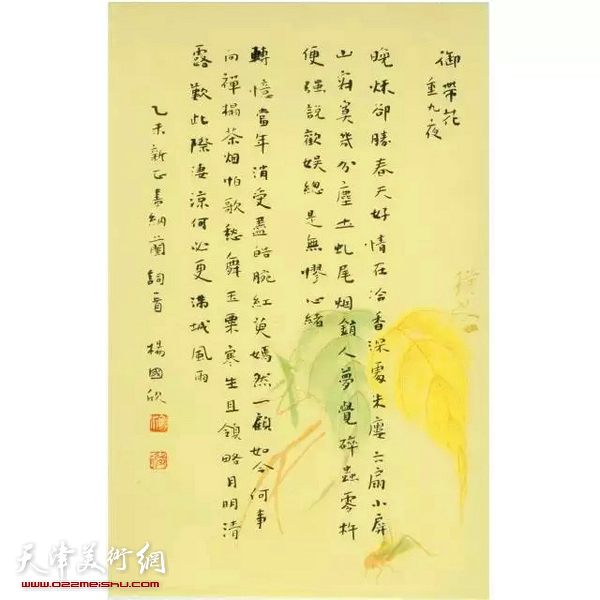 御帶花
重九夜
晚秋卻勝春天好情在冷香深處朱樓六扇小屏
山寂寞幾分塵土虬尾烟銷人夢覺碎蟲零杵
便強說歡娛總是無憀心緒
轉憶當年消受盡皓腕紅萸嫣然一顧如今何事
向禪榻茶烟怕歌愁舞玉粟寒生且領略月明清
露歎此際淒涼何必更滿城風雨
乙未新正書納蘭詞一首 楊國欣
天津美術網
www.022meishu.com